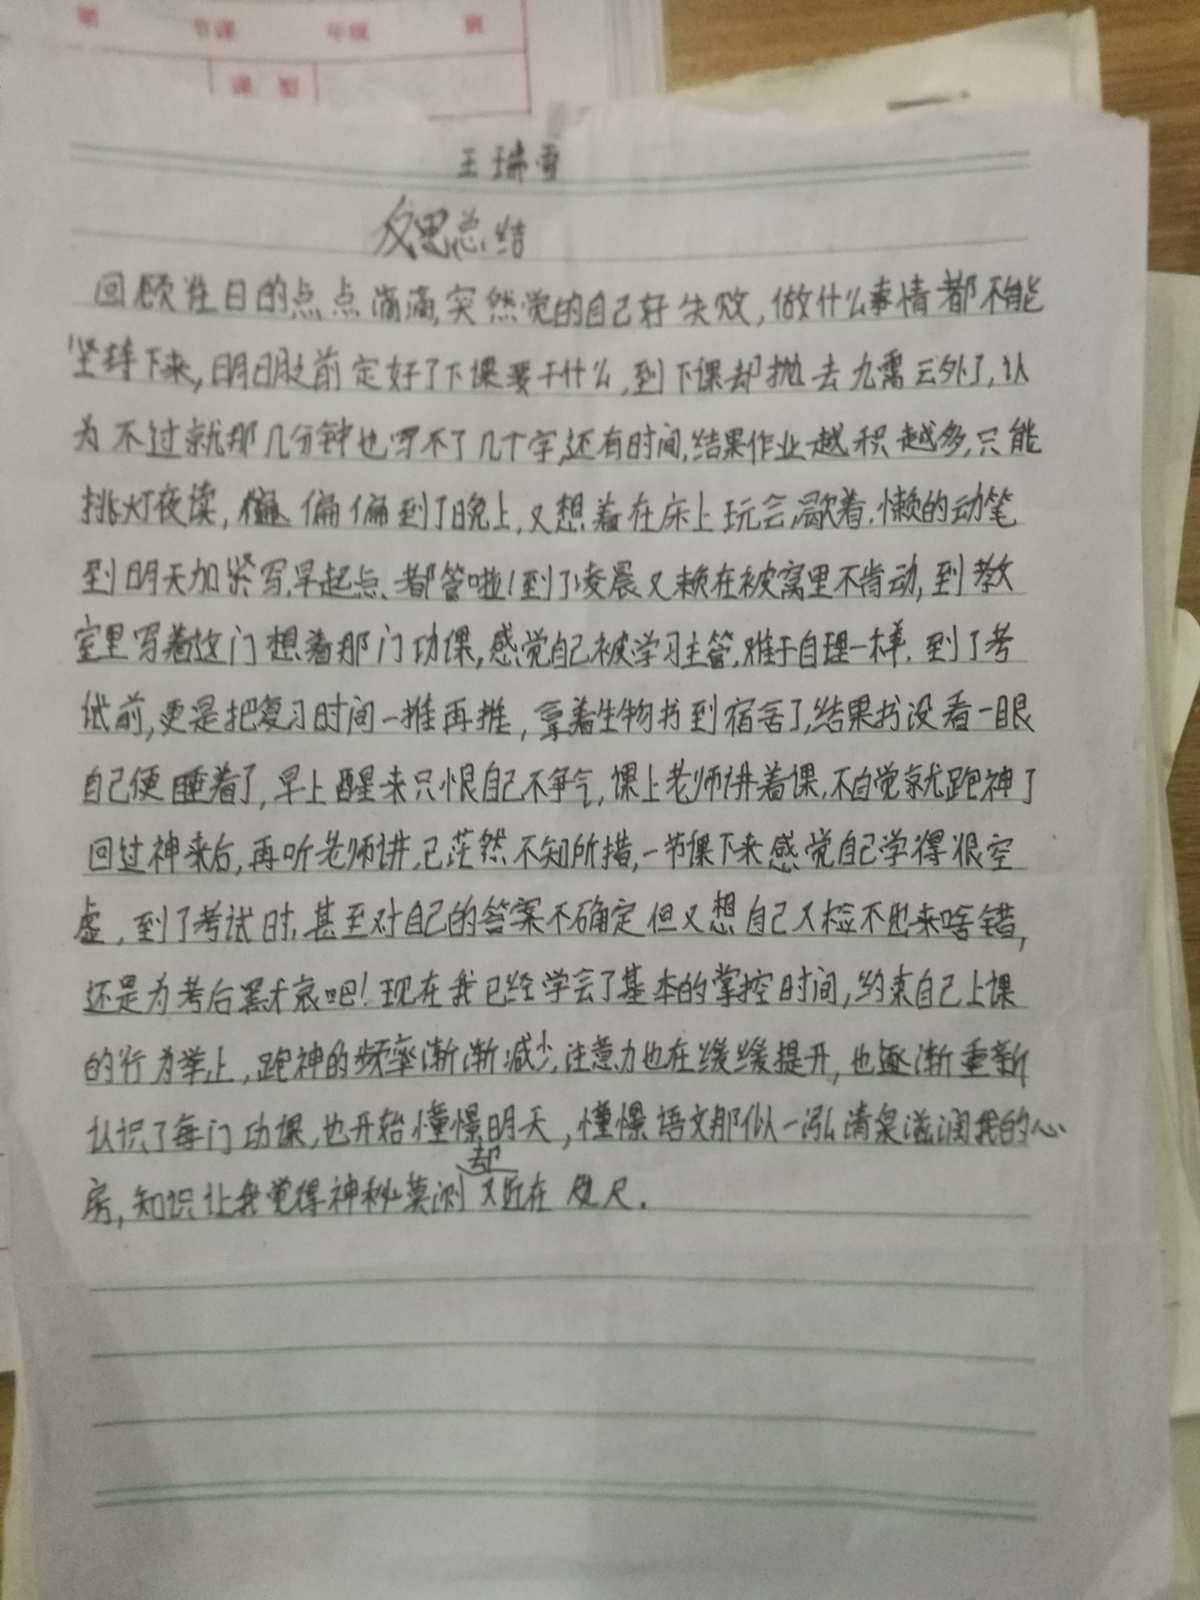 第 节课 年级 班
课型
王瑞雪
反思总结
回顾往日的点点滴滴,突然觉的自己好失败,做什么事情都不能
坚持下来,明明之前定好了下课要干什么,到下课却抛去九霄云外了,认
为不过就那几分钟也写不了几十字,还有时间,结果作业越积越多,只能
挑灯夜读,偏偏到了晚上,又想着在床上玩会,歇着.懒的动笔
到明天加紧写,早起点.都管啦!到了凌晨又赖在被窝里不肯动,到教
室里写着这门想着那门功课,感觉自己被学习主管,难于自理一样.到了考
试前,更是把复习时间一推再推,拿着生物书到宿舍了,结果书没看一眼
自己便睡着了,早上醒来只恨自己不争气,课上老师讲着课,不自觉就跑神了
回过神来后,再听老师讲,已茫然不知所措,一节课下来感觉自己学得很空
虚,到了考试时,甚至对自己的答案不确定但又想自己又检不出来啥错,
还是为考后默哀吧!现在我已经学会了基本的掌控时间,约束自己上课
的行为举止,跑神的频率渐渐减少,注意力也在缓缓提升,也逐渐重新
认识了每门功课,也开始憧憬明天,憧憬语文那似一泓清泉滋润我的心
房,知识让我觉得神秘莫测却又近在咫尺.